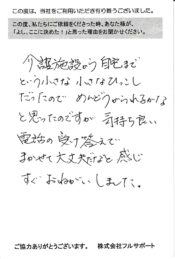 この度は、当社をご利用いただき有り難うございました。
この度、私たちにご依頼をくださった時、あなた様が、
「よし、ここに決めた！」と思った理由をお聞かせください。
介護施設から自宅まで
という小さな小さなひっこし
だったので めんどうがられるかな
と思ったのですが 気持ち良い
電話の受け答えで
まかせて大丈夫だなと感じ
すぐおねがいしました。
ご協力ありがとうございます。 株式会社フルサポート